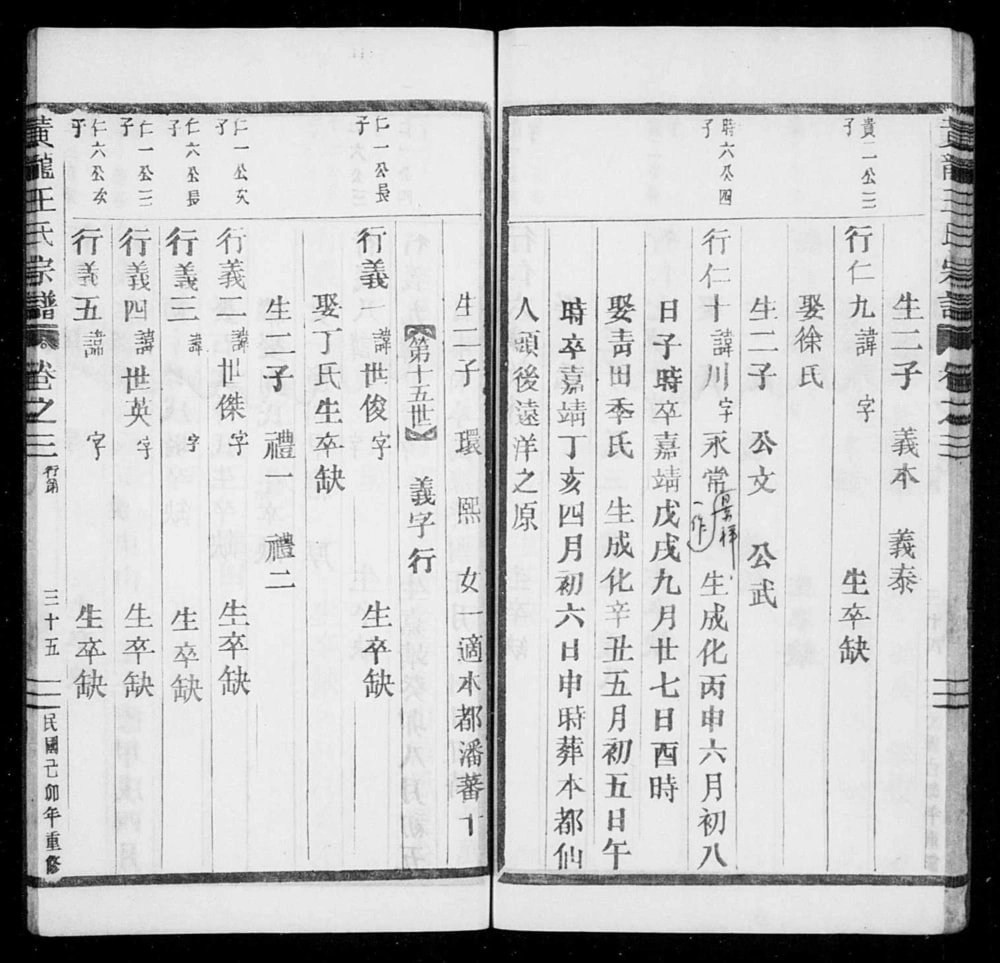 黃龍王氏宗譜 卷之三
貴二公三子
生二子 義本 義泰
行仁九 諱 字 生卒缺
娶徐氏
生二子 公文 公武
時六公四子
行仁十 諱川 字永常 一作 生成化丙申六月初八
日子時卒嘉靖戊戌九月廿七日酉時
娶青田季氏 生成化辛丑五月初五日午
時卒嘉靖丁亥四月初六日申時葬本都仙
人頭後遠洋之原
生二子 環 熙 女一適本都潘蕃十
【第十五世】 義字行
仁一公長子
行義一 諱世俊 字 生卒缺
娶丁氏生卒缺
生二子 禮一 禮二
仁一公次子
行義二 諱世傑 字 生卒缺
仁六公長子
行義三 諱 字 生卒缺
仁一公三子
行義四 諱世英 字 生卒缺
仁六公次子
行義五 諱 字 生卒缺
黃龍王氏宗譜 卷之三 行第 三十五 民國己卯年重修